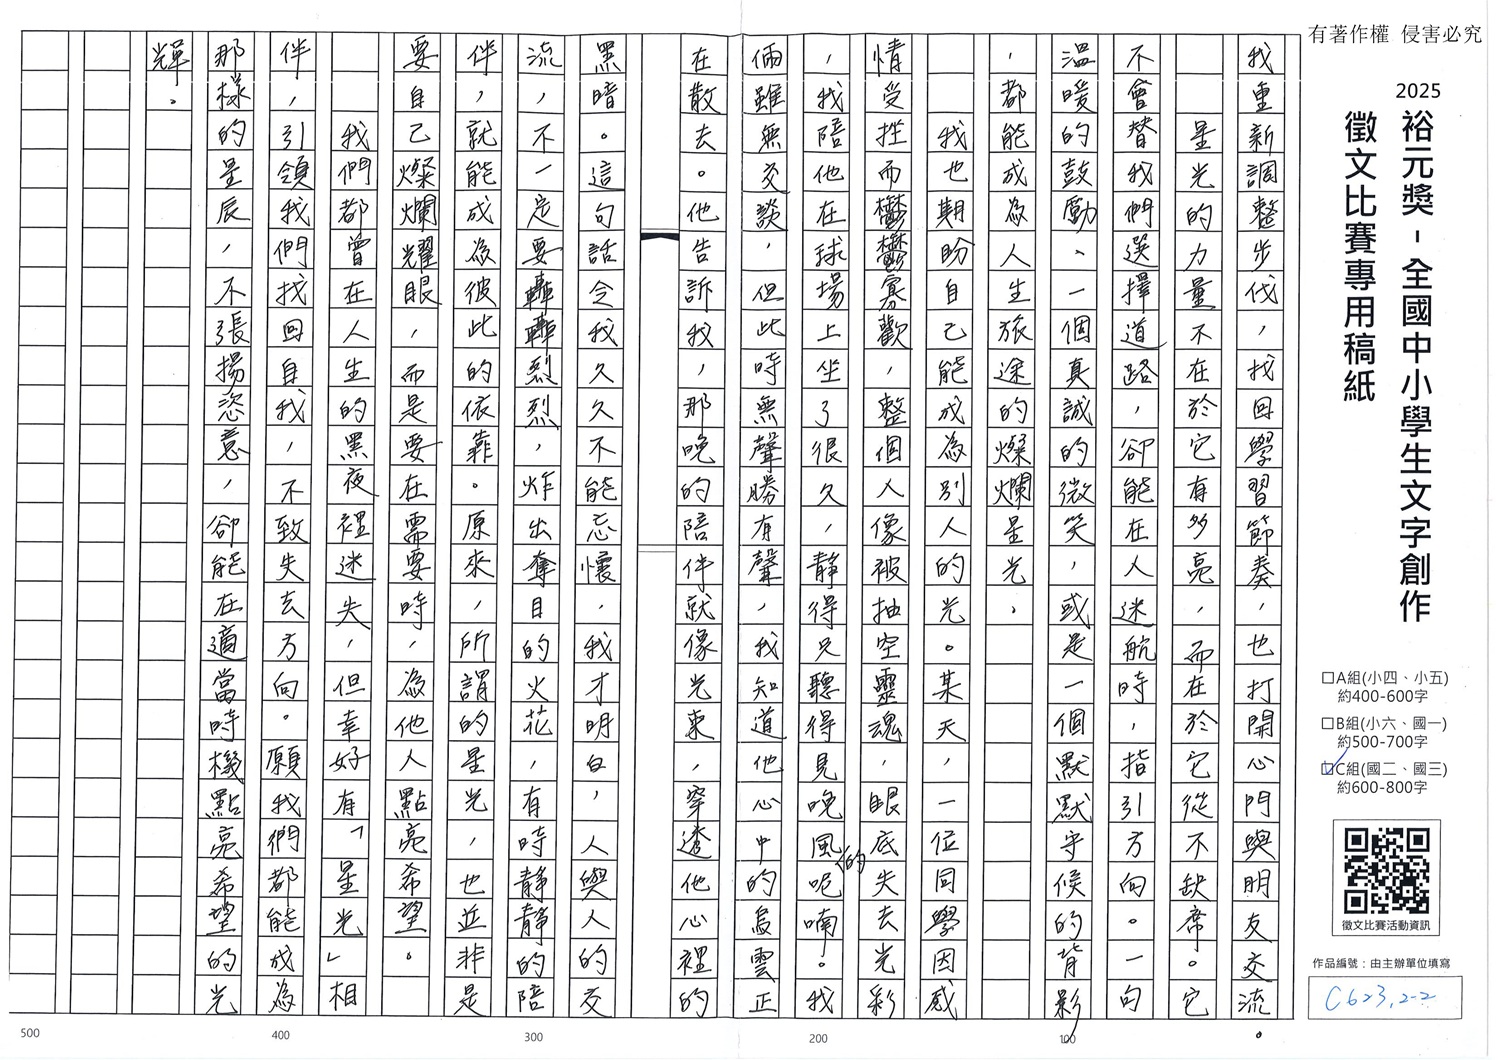 有著作權 侵害必究
2025
裕元獎-全國中小學生文字創作
徵文比賽專用稿紙
□A組(小四、小五)
約400-600字
□B組(小六、國一)
約500-700字
☑C組(國二、國三)
約600-800字
徵文比賽活動資訊
作品編號：由主辦單位填寫
C623,2-2
我重新調整步伐，找回學習節奏，也打開心門與明友交流。
星光的力量不在於它有多亮，而在於它從不缺席。它
不會替我們選擇道路，卻能在人迷航時，指引方向。一句
溫暖的鼓勵、一個真誠的微笑，或是一個默默守候的背影
，都能成為人生旅途的燦爛星光。
我也期盼自己能成為別人的光。某天，一位同學因感
情受挫而鬱鬱寡歡，整個人像被抽空靈魂，眼底失去光彩
，我陪他在球場上坐了很久，靜得只聽得見晚風的呢喃。我
倆雖無交談，但此時無聲勝有聲，我知道他心中的烏雲正
在散去。他告訴我，那晚的陪伴就像光束，穿透他心裡的
黑暗。這句話令我久久不能忘懷，我才明白，人與人的交
流，不一定要轟轟烈烈，炸出奪目的火花，有時靜靜的陪
伴，就能成為彼此的依靠。原來，所謂的星光，也並非是
要自己燦爛耀眼，而是要在需要時，為他人點亮希望。
我們都曾在人生的黑夜裡迷失，但幸好有「星光」相
伴，引領我們找回自我，不致失去方向。願我們都能成為
那樣的星辰，不張揚恣意，卻能在適當時機點亮希望的光
輝。
100
200
300
400
500